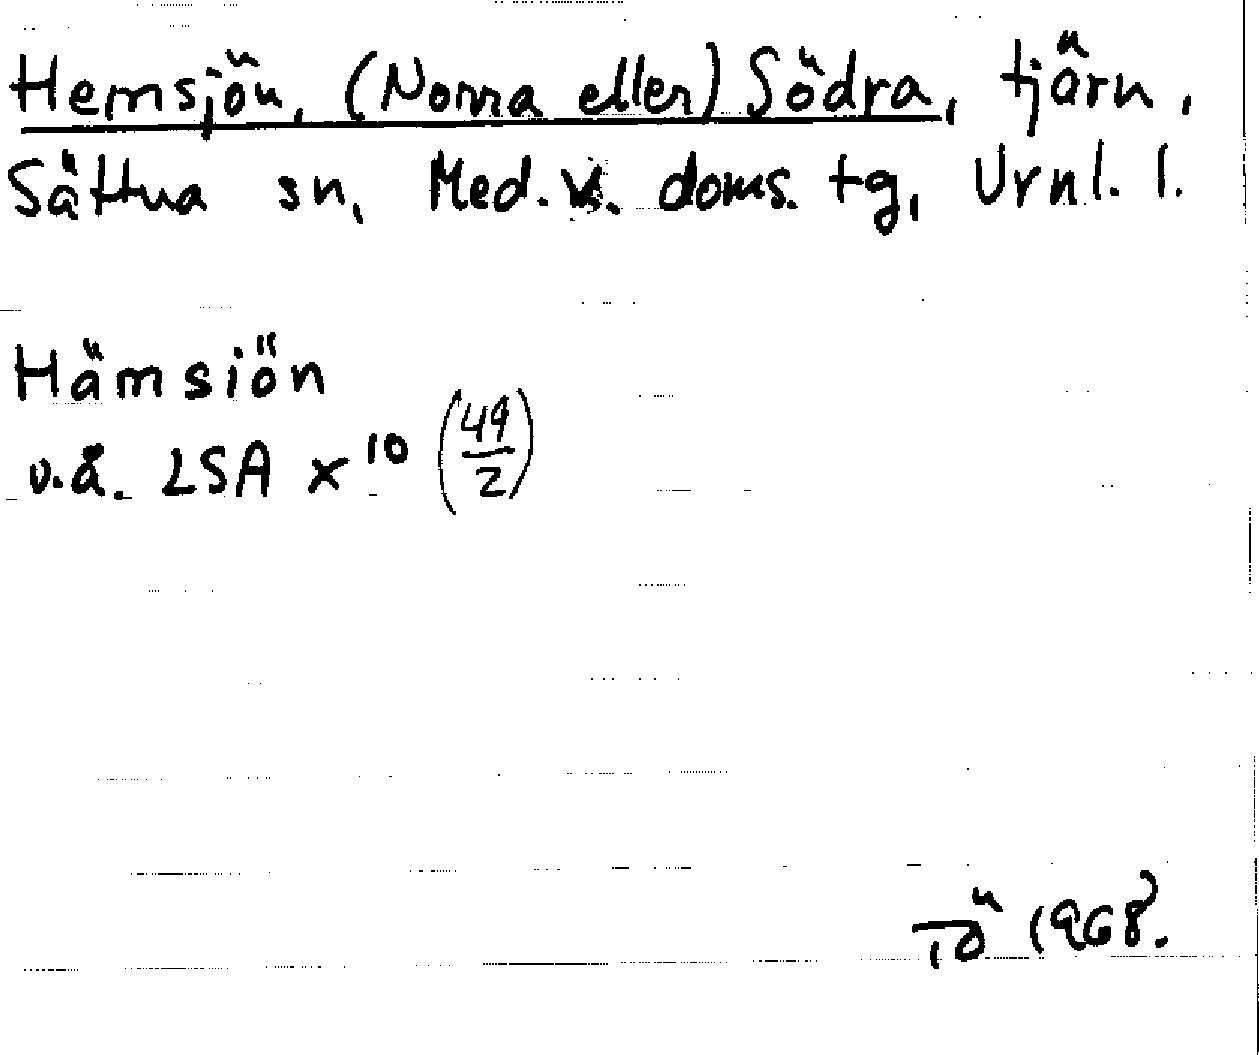 Hemsjön, (Norra eller) Södra, tjärn,
Sättna sn, Med. v. doms. tg, Vrnl. l.
Hämsiön
v.å. LSA x 10 (49/2)
Tö 1968.